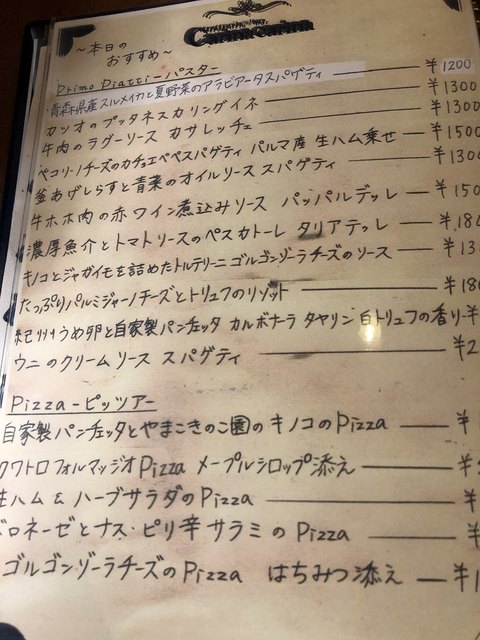 Carina Carina
～本日の
おすすめ～
Primo Piatti－パスター
青森県産スルメイカと夏野菜のアラビアータスパゲティ ¥1200
カツオのプッタネスカ リングイネ ¥1300
牛肉のラグーソース カサレッチェ ¥1300
ペコリーノチーズのカチョエペペスパゲティ パルマ産 生ハム乗せ ¥1500
釜あげしらすと青菜のオイルソース スパゲティ ¥1300
牛ホホ肉の赤ワイン煮込みソース パッパルデッレ ¥150
濃厚魚介とトマトソースのペスカトーレ タリアテッレ ¥180
キノコとジャガイモを詰めたトルテリーニ ゴルゴンゾーラチーズのソース ¥13
たっぷりパルミジャーノチーズとトリュフのリゾット ¥180
紀州うめ卵と自家製パンチェッタ カルボナーラ タヤリン 白トリュフの香り ¥
ウニのクリームソース スパゲティ ¥2
Pizza－ピッツァー
自家製パンチェッタとやまこきのこ園のキノコのPizza ¥
クワトロフォルマッジオPizza メープルシロップ添え ¥
生ハム&ハーブサラダのPizza ¥
ボロネーゼとナス・ピリ辛サラミのPizza ¥
ゴルゴンゾーラチーズのPizza はちみつ添え ¥1